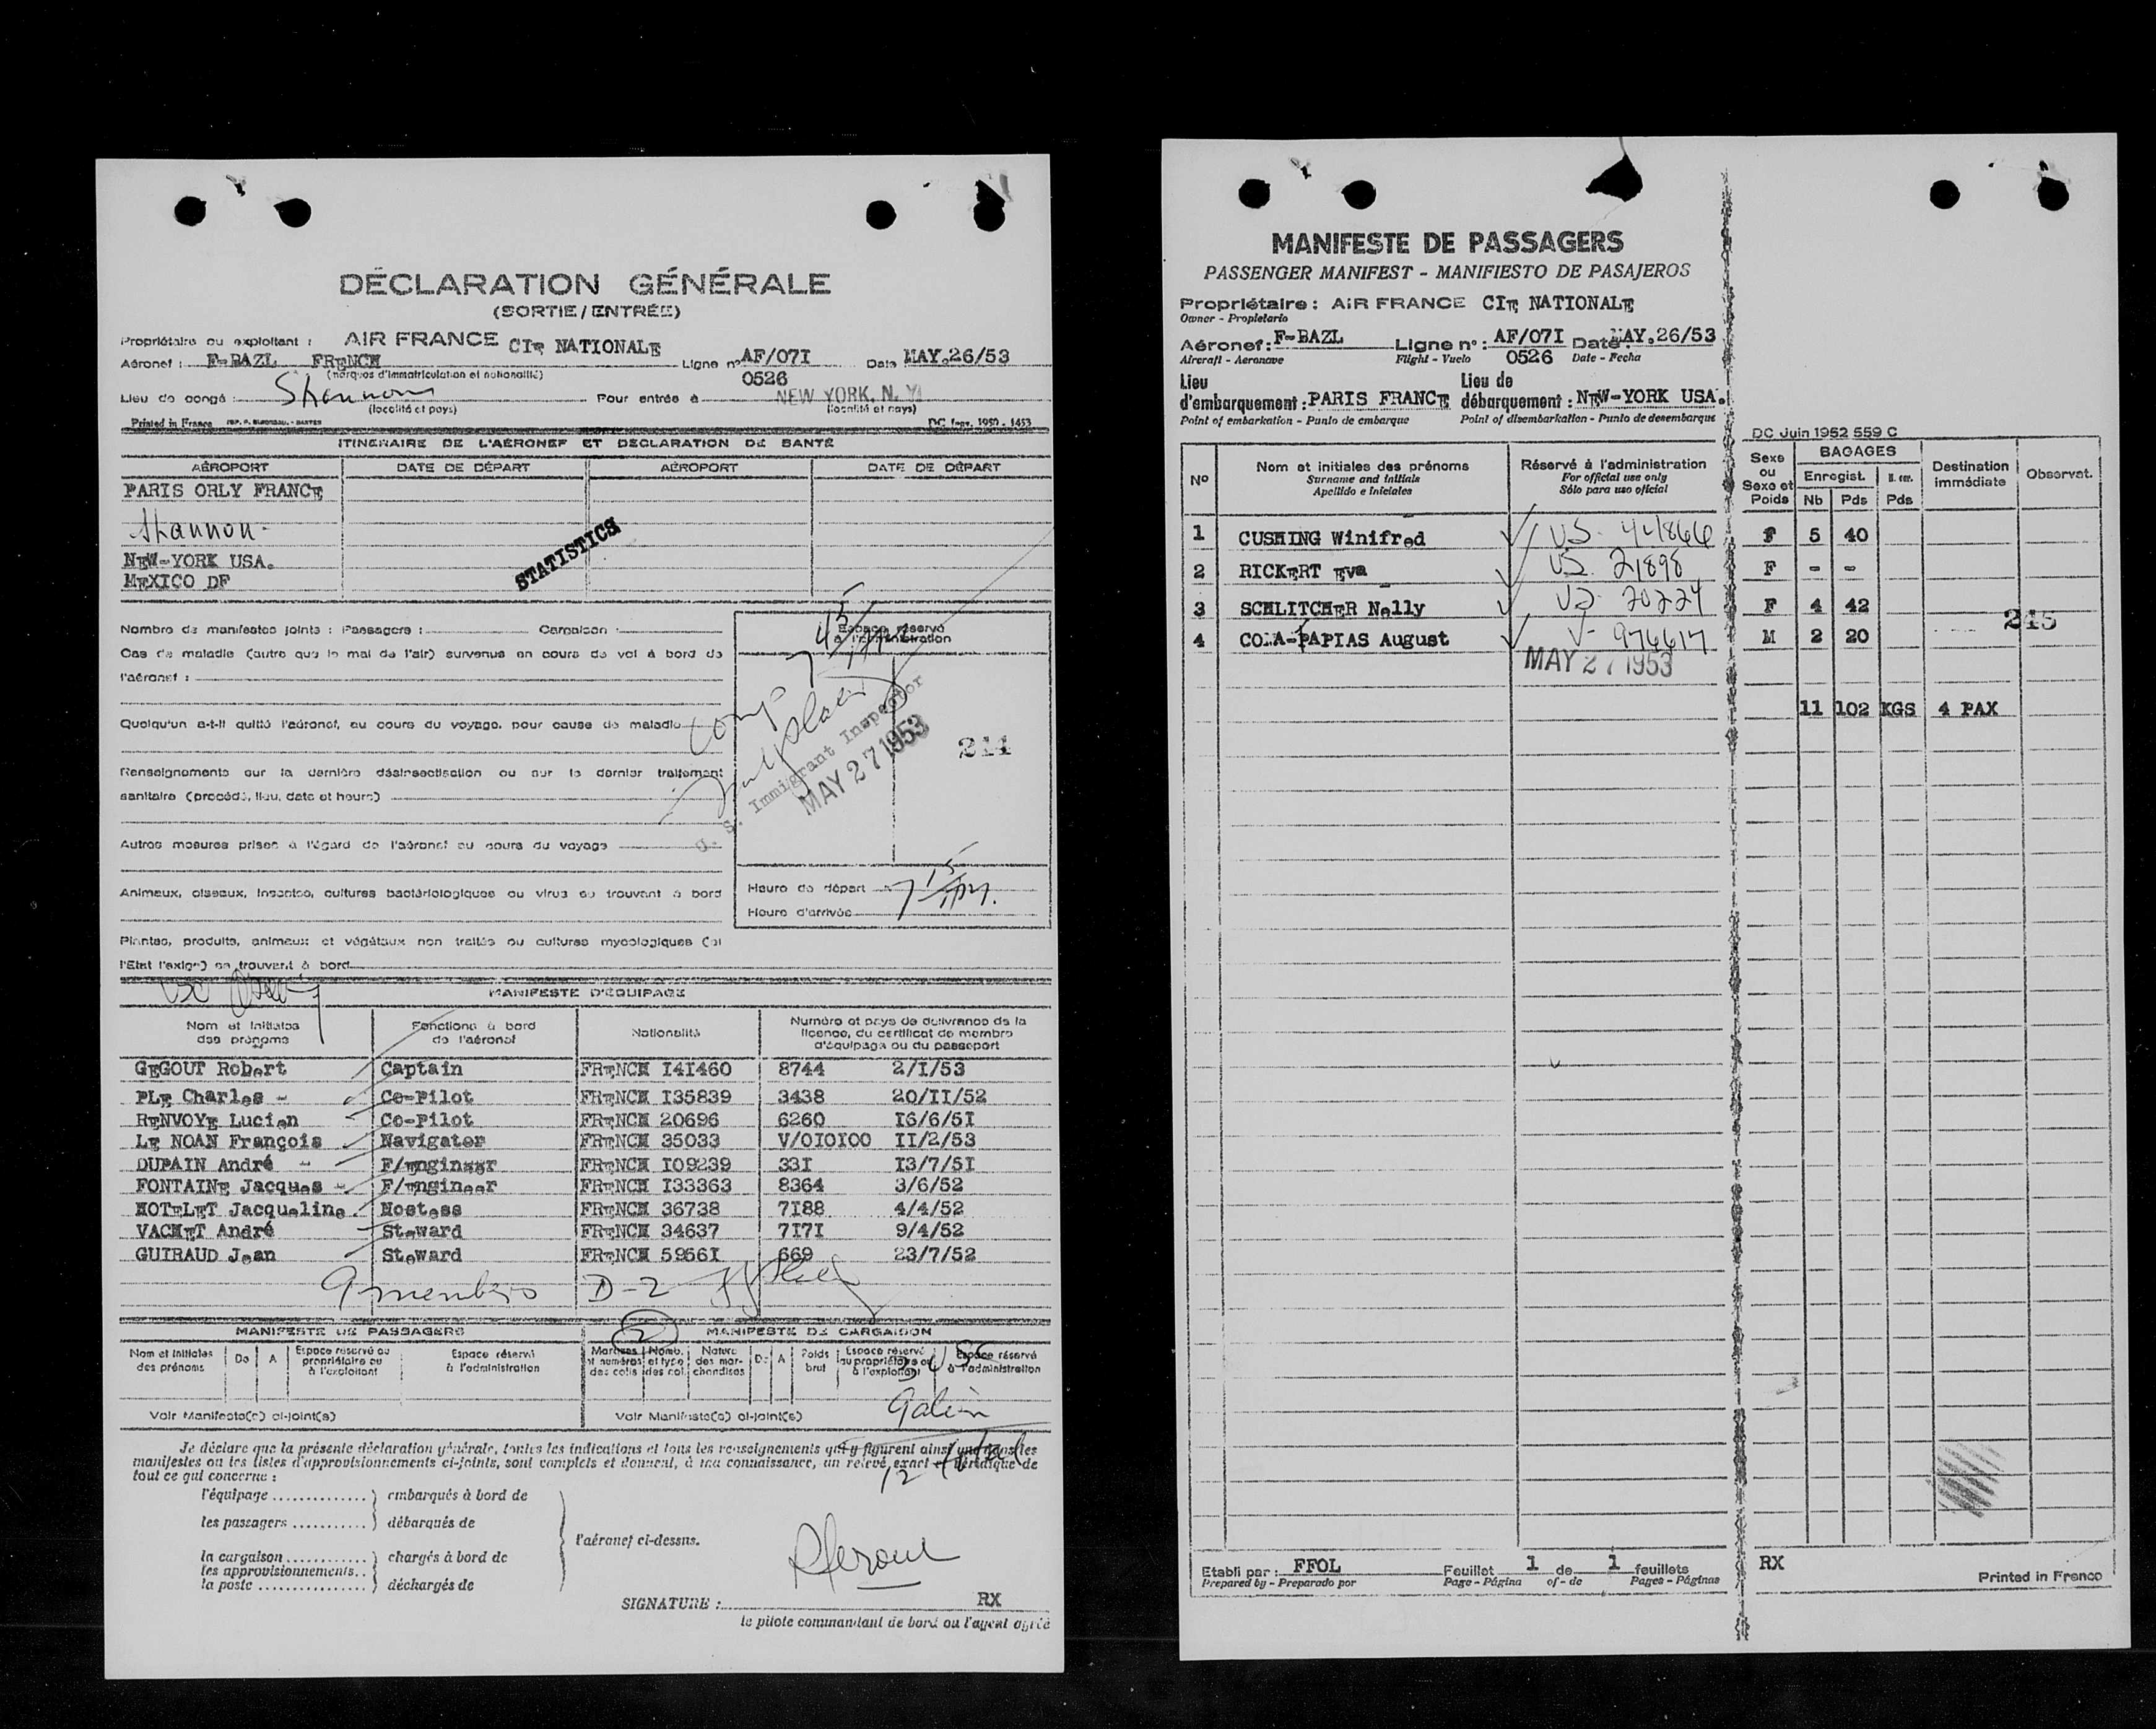 DÉCLARATION GÉNÉRALE
(SORTIE / ENTRÉE)
Propriétaire ou exploitant : AIR FRANCE CIE NATIONALE
Aéronef : F-BAZL FRENCH Ligne n° AF/07I Date MAY.26/53
(marques d'immatriculation et nationalité) 0526
Lieu de congé : Shannon Pour entrée à NEW YORK, N. Y.
(localité et pays) (localité et pays)
Printed in France DC Janv. 1950 - 1453
ITINERAIRE DE L'AÉRONEF ET DECLARATION DE SANTÉ
AÉROPORT DATE DE DÉPART AÉROPORT DATE DE DÉPART
PARIS ORLY FRANCE
Shannon -
NEW-YORK USA.
MEXICO DF
STATISTICS
Nombre de manifestes joints : Passagers : Cargaison :
Cas de maladie (autre que le mal de l'air) survenus en cours de vol à bord de
l'aéronef :
Quelqu'un a-t-il quitté l'aéronef, au cours du voyage, pour cause de maladie
Renseignements sur la dernière désinsectisation ou sur le dernier traitement
sanitaire (procédé, lieu, date et heure)
Autres mesures prises à l'égard de l'aéronef au cours du voyage
Animaux, oiseaux, insectes, cultures bactériologiques ou virus se trouvant à bord
Plantes, produits, animaux et végétaux non traités ou cultures mycologiques (si
l'Etat l'exige) se trouvant à bord
Espace réservé
à l'administration
7 45
U. S. Immigrant Inspector
MAY 27 1953
244
Heure de départ 7 15
Heure d'arrivée
MANIFESTE D'ÉQUIPAGE
Nom et initiales des prénoms Fonctions à bord de l'aéronef Nationalité Numéro et pays de délivrance de la licence, du certificat de membre d'équipage ou du passeport
GEGOUT Robert Captain FRENCH I4I460 8744 2/I/53
PLE Charles - Co-Pilot FRENCH I35839 3438 20/II/52
RENVOYE Lucien Co-Pilot FRENCH 20696 6260 I6/6/5I
LE NOAN François Navigator FRENCH 35033 V/0I0I00 II/2/53
DUPAIN André - F/Engineer FRENCH I09239 33I I3/7/5I
FONTAINE Jacques - F/Engineer FRENCH I33363 8364 3/6/52
HOTELET Jacqueline Hostess FRENCH 36738 7I88 4/4/52
VACHET André Steward FRENCH 34637 7I7I 9/4/52
GUIRAUD Jean Steward FRENCH 5956I 669 23/7/52
9 members D-2
MANIFESTE DE PASSAGERS 2 MANIFESTE DE CARGAISON
Nom et initiales des prénoms De A Espace réservé au propriétaire ou à l'exploitant Espace réservé à l'administration Marques et numéros des colis Nomb. et type des col. Nature des marchandises De A Poids brut Espace réservé au propriétaire ou à l'exploitant Espace réservé à l'administration
3 USC
Voir Manifeste(s) ci-joint(s) Voir Manifeste(s) ci-joint(s)
12 total
Je déclare que la présente déclaration générale, toutes les indications et tous les renseignements qui y figurent ainsi que dans les
manifestes ou les listes d'approvisionnements ci-joints, sont complets et donnent, à ma connaissance, un relevé exact et véridique de
tout ce qui concerne :
l'équipage .............. ) embarqués à bord de
les passagers ........... ) débarqués de
l'aéronef ci-dessus.
la cargaison ............ ) chargés à bord de
les approvisionnements..
la poste ................ ) déchargés de
SIGNATURE : RX
le pilote commandant de bord ou l'agent agréé
MANIFESTE DE PASSAGERS
PASSENGER MANIFEST - MANIFIESTO DE PASAJEROS
Propriétaire : AIR FRANCE CIE NATIONALE
Owner - Propietario
Aéronef : F-BAZL Ligne n° : AF/07I Date MAY.26/53
Aircraft - Aeronave Flight - Vuelo 0526 Date - Fecha
Lieu d'embarquement : PARIS FRANCE Lieu de débarquement : NEW-YORK USA.
Point of embarkation - Punto de embarque Point of disembarkation - Punto de desembarque
DC Juin 1952 559 C
N° Nom et initiales des prénoms Réservé à l'administration Sexe ou Sexe et Poids BAGAGES Destination immédiate Observat.
Surname and initials For official use only Enregist. N. enr.
Apellido e iniciales Sólo para uso oficial Nb Pds Pds
1 CUSHING Winifred US. 441866 F 5 40
2 RICKERT Eva US. 21898 F - -
3 SCHLITCHER Nelly US. 20224 F 4 42
245
4 COLA-PAPIAS August V- 976617 M 2 20
MAY 27 1953
11 102 KGS 4 PAX
Etabli par : FFOL Feuillet 1 de 1 feuillets RX
Prepared by - Preparado por Page - Página of - de Pages - Páginas
Printed in France